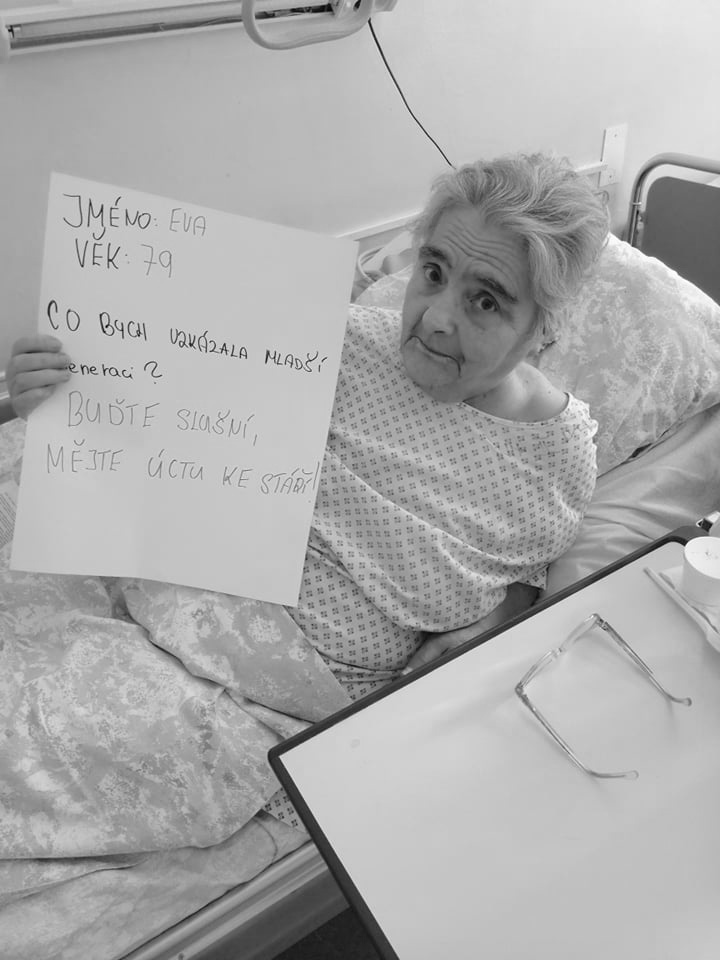 JMÉNO: EVA
VĚK: 79
CO BYCH VZKÁZALA MLADŠÍ
eneraci?
BUĎTE SLUŠNÍ,
MĚJTE ÚCTU KE STÁŘÍ!